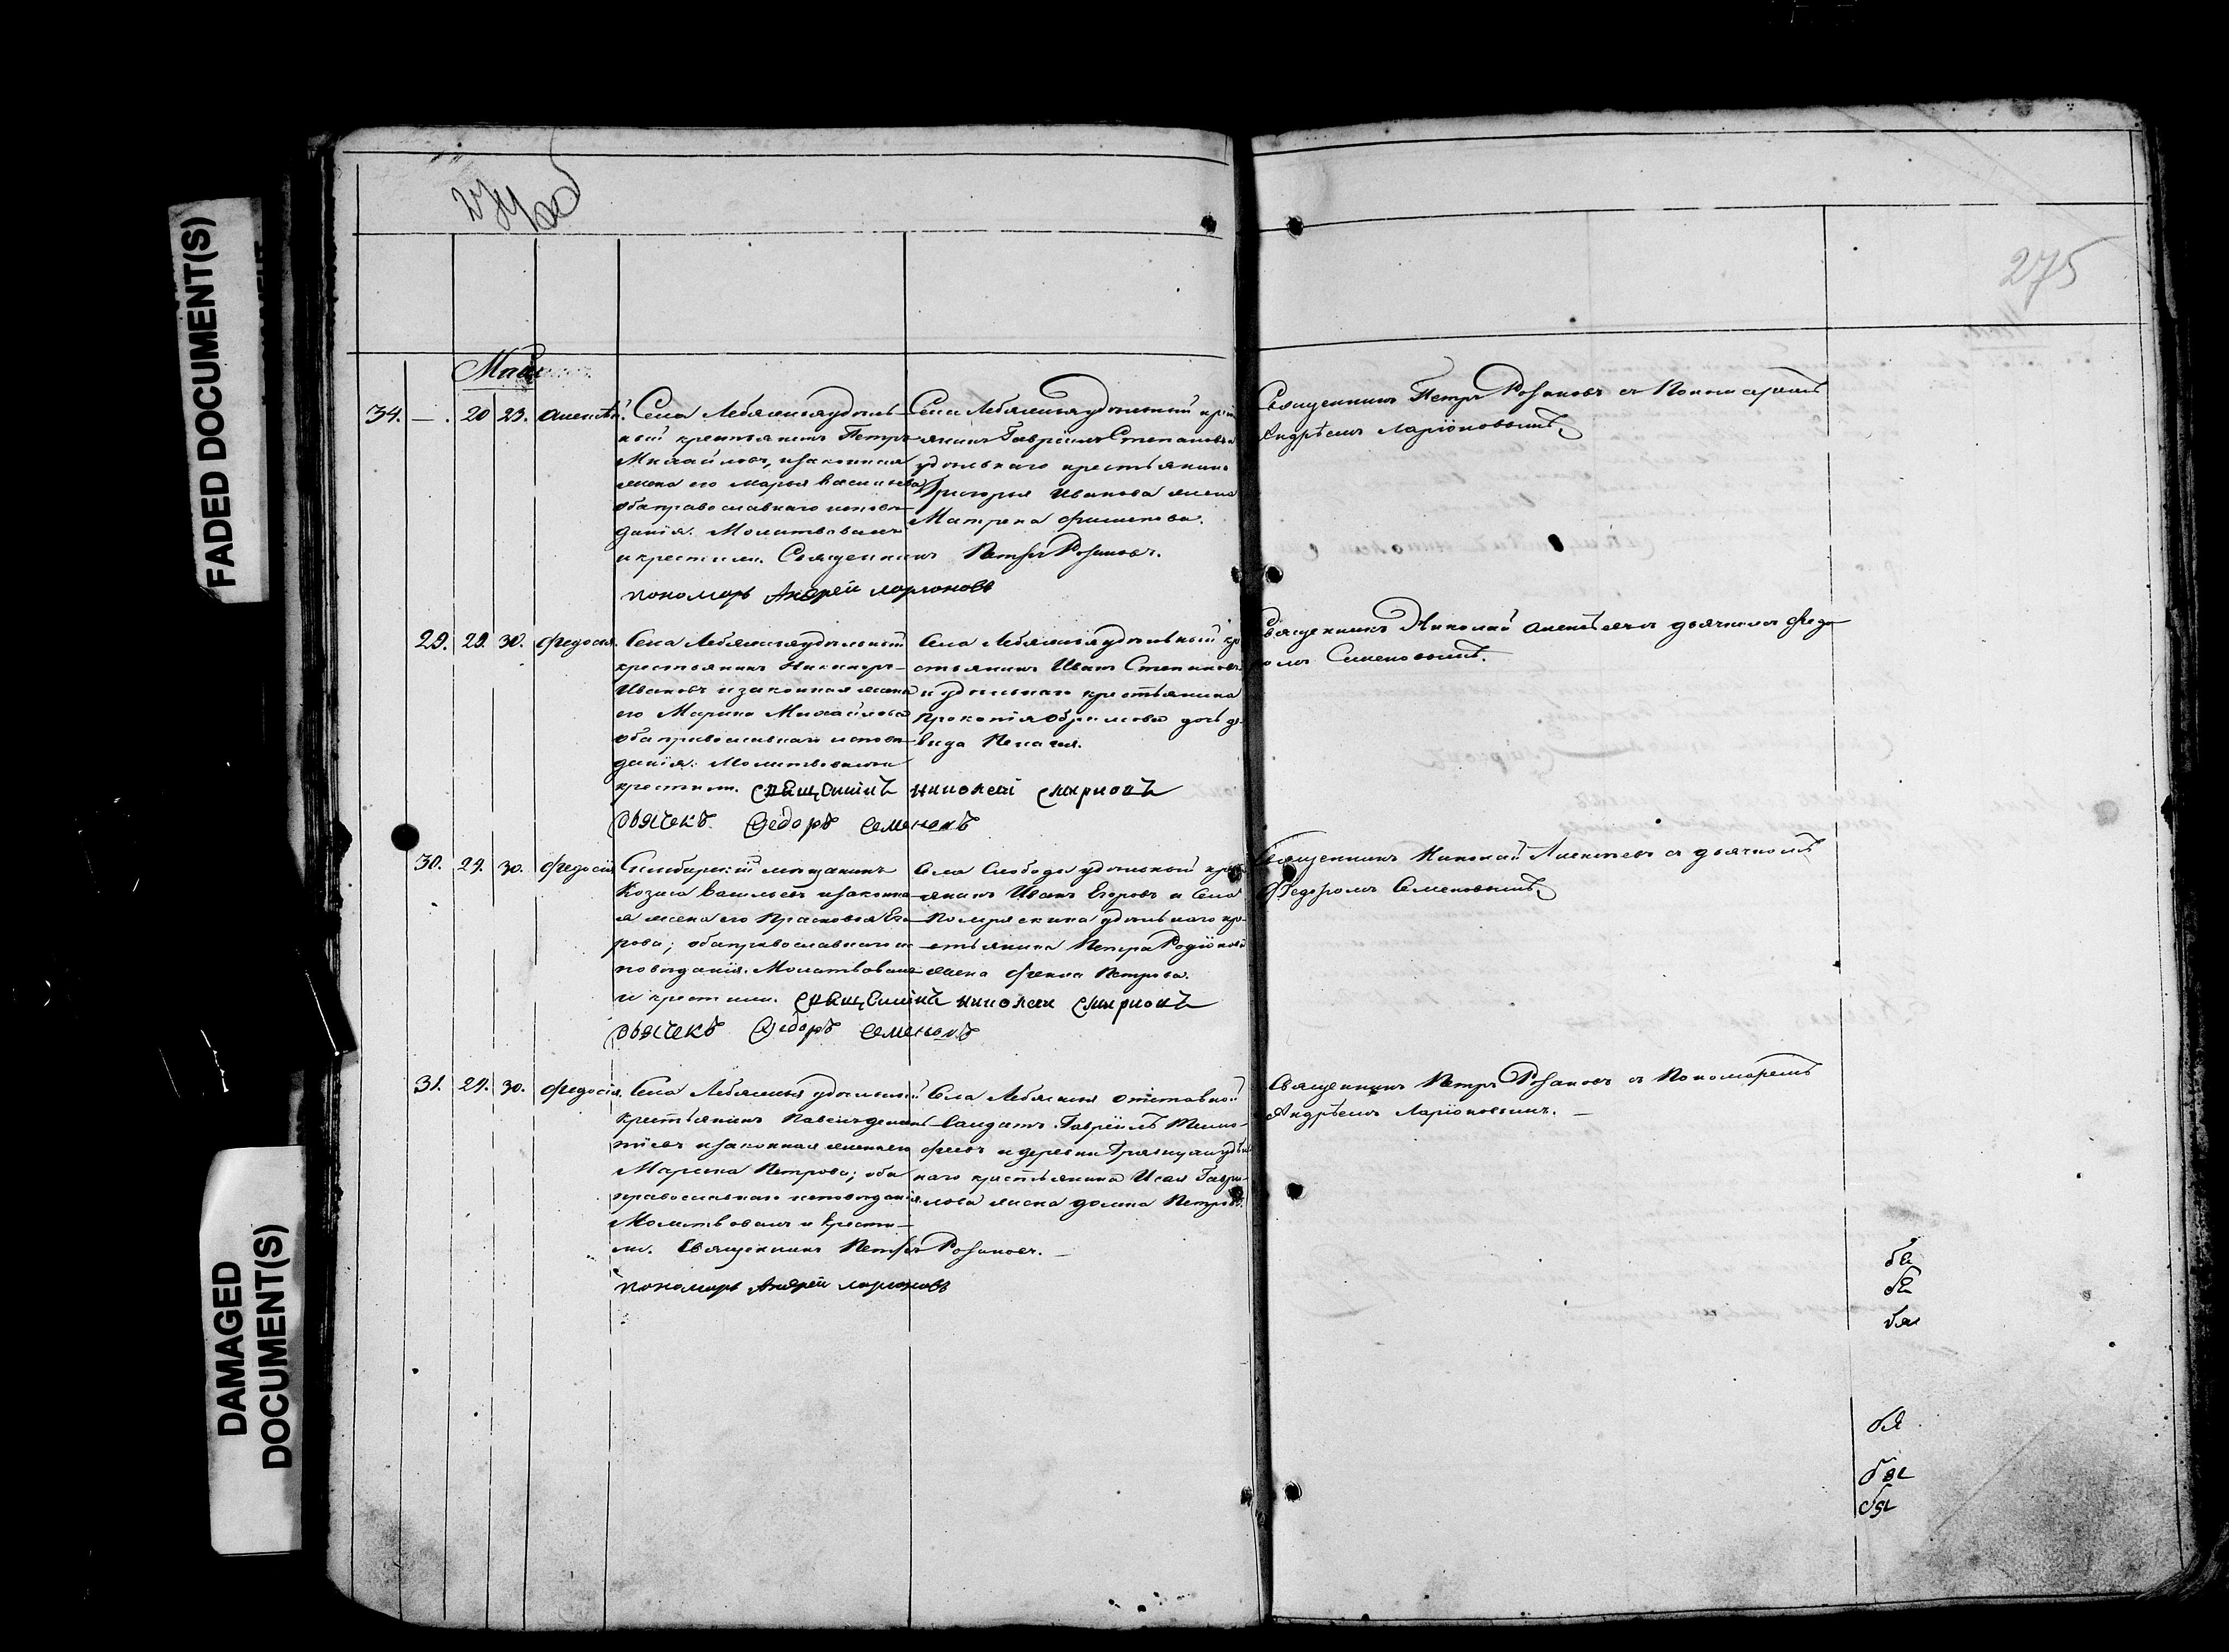 FADED DOCUMENT(S)
DAMAGED
DOCUMENT(S)
274 об
275
Май
34. — . 20 23. Алексѣй.
Села Лебяжья удѣль-
ный крестьянинъ Петръ
Михайловъ, и законная
жена его Марья Васильева
оба православнаго исповѣ-
данія. Молитвовалъ
и крестили. Священникъ Петръ Розановъ.
пономарь Андрей Ларіоновъ
Села Лебяжья удѣльный крест
янинъ Гавріилъ Степановъ и
удѣльнаго крестьянина
Григорья Иванова жена
Матрена
Священникъ Петръ Розановъ съ Пономаремъ
Андрѣемъ Ларіоновымъ
29. 29. 30. Ѳедосія.
Села Лебяжья удѣльный
крестьянинъ Никифоръ
Ивановъ и законная жена
его Марина Михайлова
оба православнаго исповѣ-
данія. Молитвовалъ и
крестили. Священникъ Николай Смирновъ
Дьячекъ Ѳедоръ Семеновъ
Села Лебяжья удѣльный кре
стьянинъ Иванъ Степановъ
и удѣльнаго крестьянина
Прокопія дочь дѣ-
вица Пелагія.
Священникъ Николай Алексѣевъ съ дьячкомъ Ѳедо
ромъ Семеновымъ.
30. 29. 30. Ѳедосія
Симбирскій мѣщанинъ
Козма Васильевъ и законна
я жена его Прасковья Его-
рова; оба православнаго ис
повѣданія. Молитвовалъ
и крестили. Священникъ Николай Смирновъ
Дьячекъ Ѳедоръ Семеновъ
Села Слобода удѣльный крес
янинъ Иванъ Егоровъ и Села
Помряскина удѣльнаго кре-
стьянина Петра Родіонова
жена Ѳекла Петрова.
Священникъ Николай Алексѣевъ съ дьячкомъ
Ѳедоромъ Семеновымъ
31. 29. 30. Ѳедосія.
Села Лебяжья удѣльный
крестьянинъ Павелъ Демен-
тіевъ и законная жена его
Марина Петрова; оба
православнаго исповѣданія.
Молитвовалъ и крести-
ли. Священникъ Петръ Розановъ.
пономарь Андрей Ларіоновъ
Села Лебяжья отставной
Солдатъ Гавріилъ Тимо-
фѣевъ и деревни удѣль
наго крестьянина Исая Гаври-
лова жена Домна Петрова.
Священникъ Петръ Розановъ съ Пономаремъ
Андрѣемъ Ларіоновымъ.